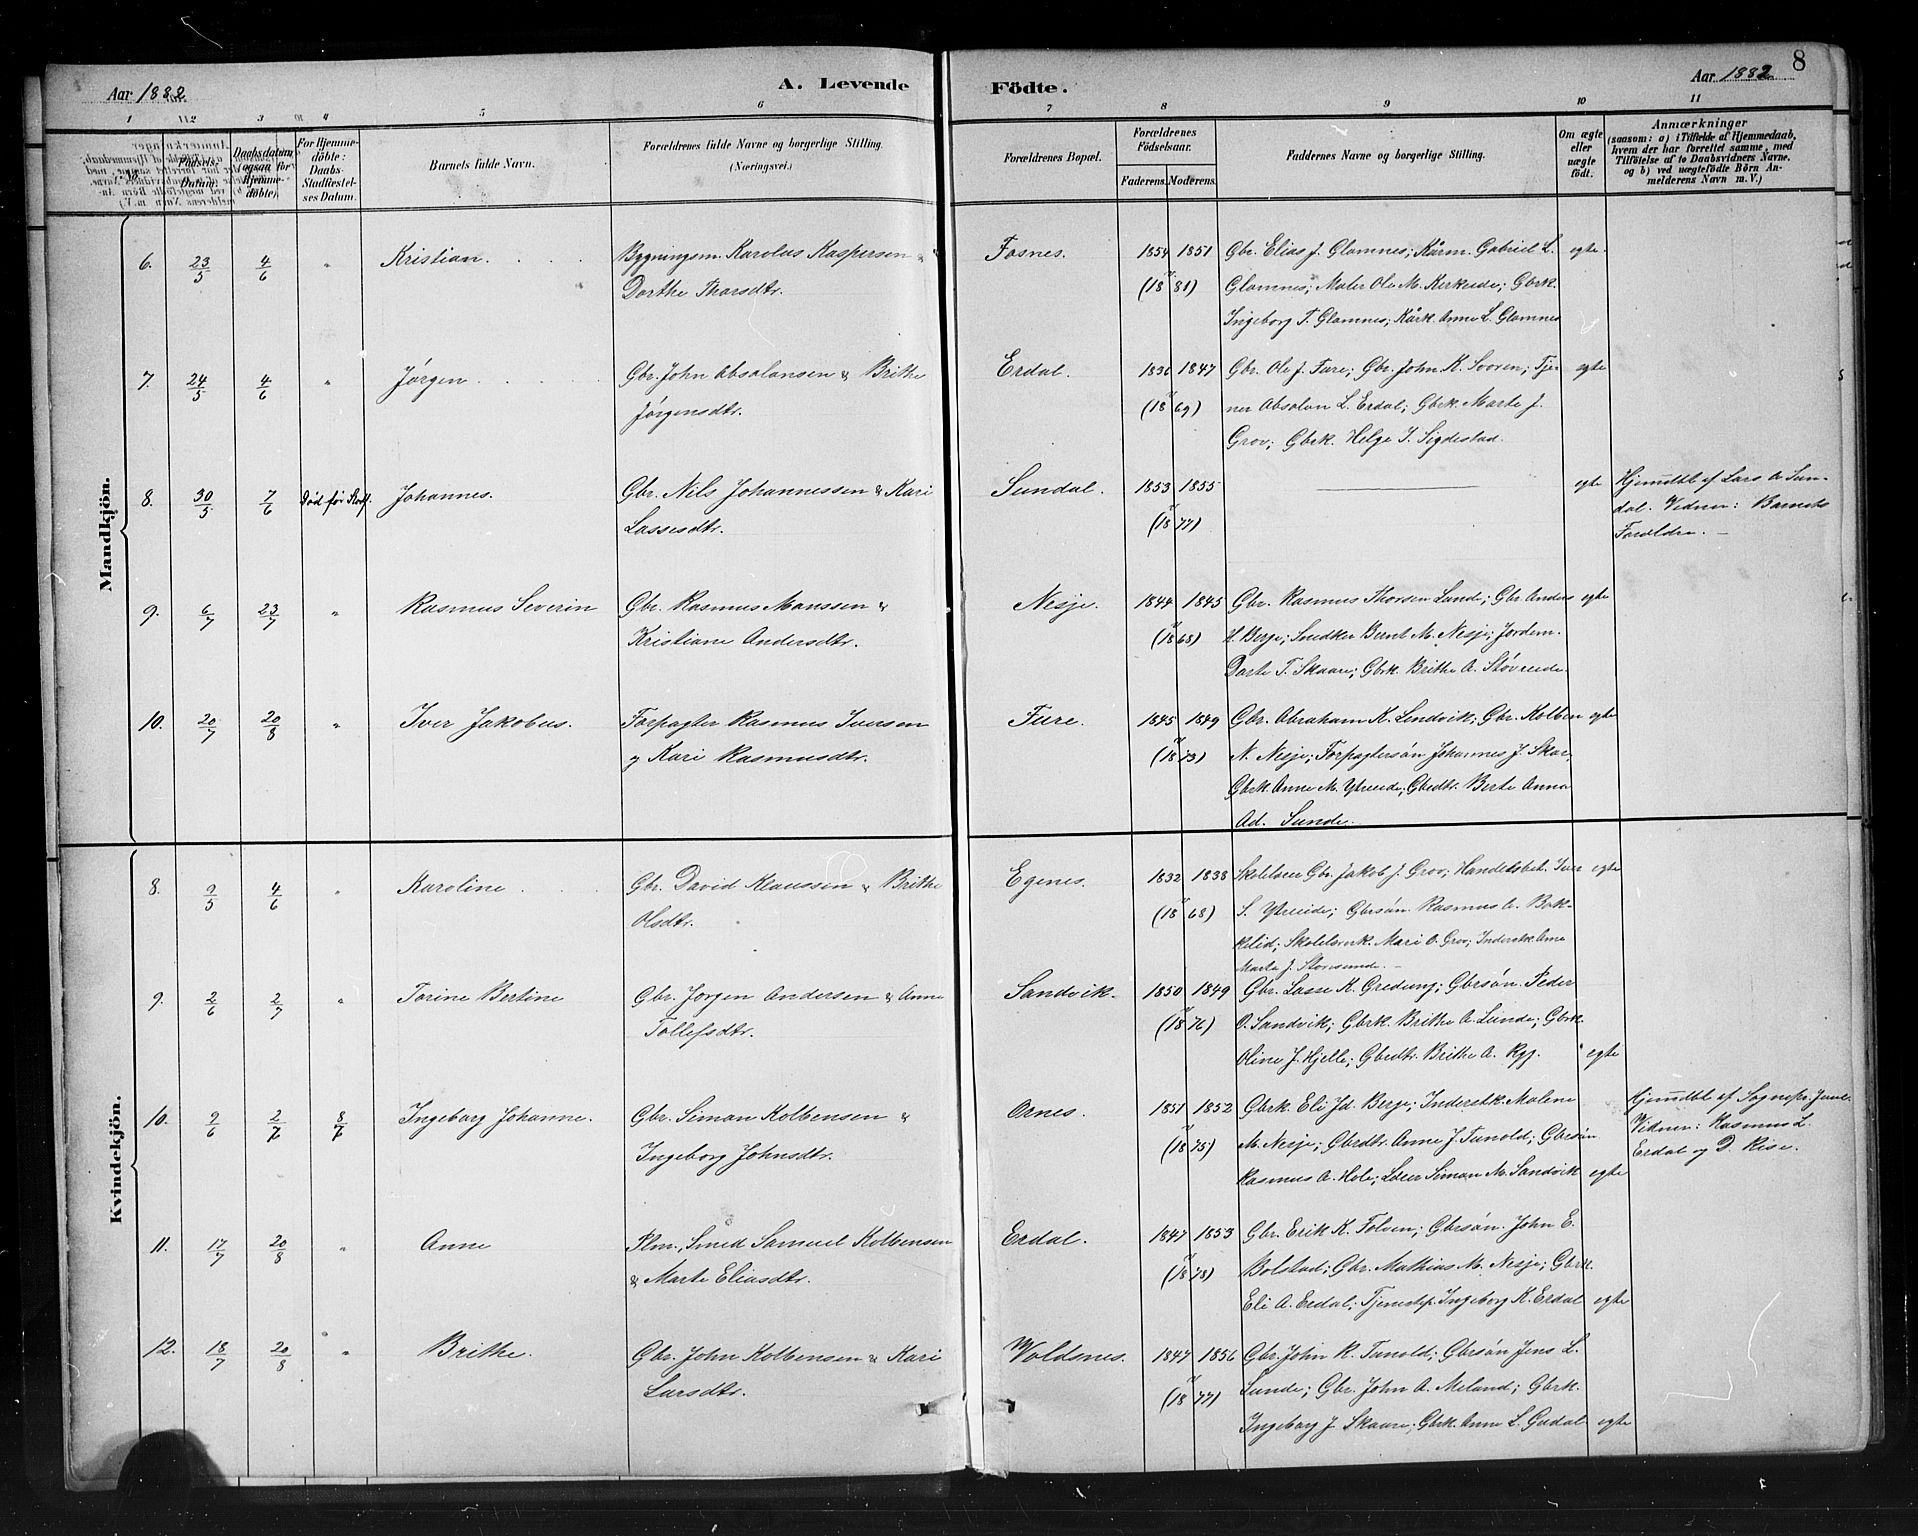 Aar 1882
A. Levende
Födte.
Aar 1882
8
1 2 3 4 5 6 7 8 9 10 11
Födsels-Datum.
Daabsdatum (ogsaa for Hjemmedöbte).
For Hjemmedöbte: Daabs-Stadfæstelses Datum.
Barnets fulde Navn.
Forældrenes fulde Navne og borgerlige Stilling.
(Næringsvei.)
Forældrenes Bopæl.
Forældrenes Födselsaar.
Faderens. Moderens.
Faddernes Navne og borgerlige Stilling.
Om ægte eller uægte födt.
Anmærkninger
(saasom: a) i Tilfælde af Hjemmedaab, hvem der har forrettet samme, med Tilföielse af to Daabsvidners Navne, og b) ved uægtefödte Börn Anmelderens Navn m. V.)
Mandkjön.
6. 23/5 4/6 " Kristian. Bygningsm. Karolus Kaspersen &
Dorthe Thorsdtr.
Fosnes. 1854 1851 (18 81)
Gbr. Elias J. Glamnes; Kårm. Gabriel L.
Glamnes; Maler Ole M. Kerkeide; Gbrk.
Ingeborg T. Glamnes; Kårk. Anne L. Glomnes
egte
7. 24/5 4/6 " Jørgen Gbr. John Absolonsen & Brithe
Jørgensdtr.
Erdal. 1836 1847 (18 69)
Gbr. Ole J. Fure; Gbr. John K. Svoren; Tje-
ner Absolon L. Erdal; Gbrk. Marte J.
Grov; Gbrk. Helge I. Sigdestad.
egte
8. 30/5 7/6 Død før Stadf. Johannes. Gbr. Nils Johannessen & Kari
Lassesdtr.
Sundal. 1853 1855 (18 77)
egte
Hjemdbt af Lars A. Sun-
dal. Vidner: Barnets
Forældre. —
9. 6/7 23/7 " Rasmus Severin Gbr. Rasmus Monssen &
Kristiane Andersdtr.
Nesje. 1844 1845 (18 68)
Gbr. Rasmus Thorsen Lunde; Gbr. Anders
H. Berje; Snedker Bernt M. Nesje; Jordem.
Dorte T. Skaare; Gbrk. Brithe A. Støvreide.
egte
10. 20/7 20/8 " Iver Jakobus. Forpagter Rasmus Iversen
og Kari Rasmusdtr.
Fure. 1845 1849 (18 73)
Gbr. Abraham K. Lendvik; Gbr. Kolben
N. Nesje; Forpagtersøn Johannes J. Skar;
Gbrk. Anne M. Ytreeide; Gbedtr. Berte Anna
Ad. Sunde.
egte
Kvindekjön.
8. 9/5 4/6 " Karoline Gbr. David Klaussen & Brithe
Olsdtr.
Egenes. 1832 1838 (18 68)
Skolelærer Gbr. Jakob J. Grov; Handelsbet. Iver
S. Ytreeide; Gbrsøn. Rasmus A. Bok-
kelid; Mari O. Grov; Inderstk. Ane
Marta J. Storesunde. —
egte
9. 2/6 2/7 " Torine Bertine Gbr. Jørgen Andersen & Anne
Tollefsdtr.
Sandvik. 1850 1849 (18 76)
Gbr. Lasse K. Gredung; Gbrsøn. Peder
O. Sandvik; Gbrk. Brithe A. Lunde; Gbrk.
Oline J. Hjelle; Gbedtr. Brithe A. Ryg.
egte
10. 9/6 2/7 8/7 Ingeborg Johanne. Gbr. Simon Kolbensen &
Ingeborg Johnsdtr.
Ornes. 1851 1852 (18 75)
Gbrk. Eli Jd. Berje; Inderstk. Malene
M. Nesje; Gbrdtr. Anne J. Tunold; Gbrsøn
Rasmus A. Hole; Simon M. Sandvik
egte
Hjemdbt af Sognepr.
Vidner: Rasmus L.
Erdal og D. Rise.
11. 17/7 20/8 " Anne Plm., Smed Samuel Kolbensen
& Marte Eliasdtr.
Erdal. 1847 1853 (18 78)
Gbr. Erik K. Tolven; Gbrsøn. John E.
Bolstad; Gbr. Mathias M. Nesje; Gbrk.
Eli A. Erdal; Tjenestep. Ingeborg K. Erdal
egte
12. 18/7 20/8 " Brithe. Gbr. John Kolbensen & Kari
Larsdtr.
Woldsnes. 1847 1856 (18 77)
Gbr. John R. Tunold; Gbrsøn Jens L.
Sunde; Gbr. John A. Meland; Gbrk.
Ingeborg J. Skaare; Gbrk. Anne L. Gudal
egte